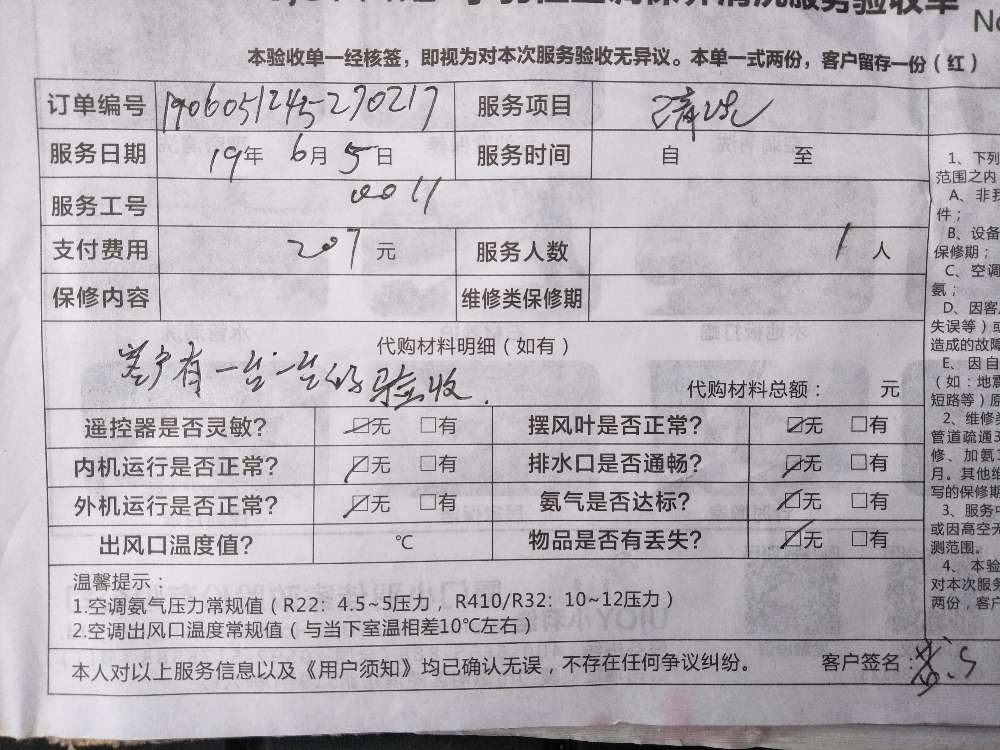 养清洗服务验收单
No
本验收单一经核签，即视为对本次服务验收无异议。本单一式两份，客户留存一份（红）
订单编号 1906051245-270217 服务项目 清洗
服务日期 19年 6月 5日 服务时间 自 至
服务工号 0011
支付费用 207 元 服务人数 1 人
保修内容 维修类保修期
代购材料明细（如有）
客户有一台一台的验收.
代购材料总额： 元
遥控器是否灵敏？ ☑无 □有 摆风叶是否正常？ ☑无 □有
内机运行是否正常？ ☑无 □有 排水口是否通畅？ ☑无 □有
外机运行是否正常？ ☑无 □有 氨气是否达标？ ☑无 □有
出风口温度值？ ℃ 物品是否有丢失？ ☑无 □有
温馨提示：
1.空调氨气压力常规值（R22：4.5~5压力，R410/R32：10~12压力）
2.空调出风口温度常规值（与当下室温相差10℃左右）
本人对以上服务信息以及《用户须知》均已确认无误，不存在任何争议纠纷。 客户签名：
1、下列
范围之内
A、非我
件；
B、设备
保修期；
C、空调
氨；
D、因客
失误等）或
造成的故障
E、因自
（如：地震
短路等）原
2、维修类
管道疏通3
修、加氨
月。其他维
写的保修期
3、服务中
或因高空无
测范围。
4、本验
对本次服务
两份，客户